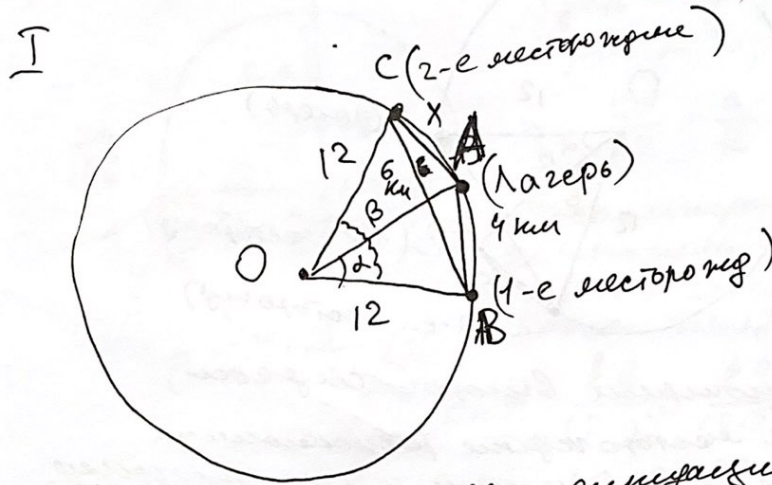 I
C (2-е месторождение)
x
A
12
6 км
(Лагерь)
β
4 км
O
α
12
B
(1-е месторожд)